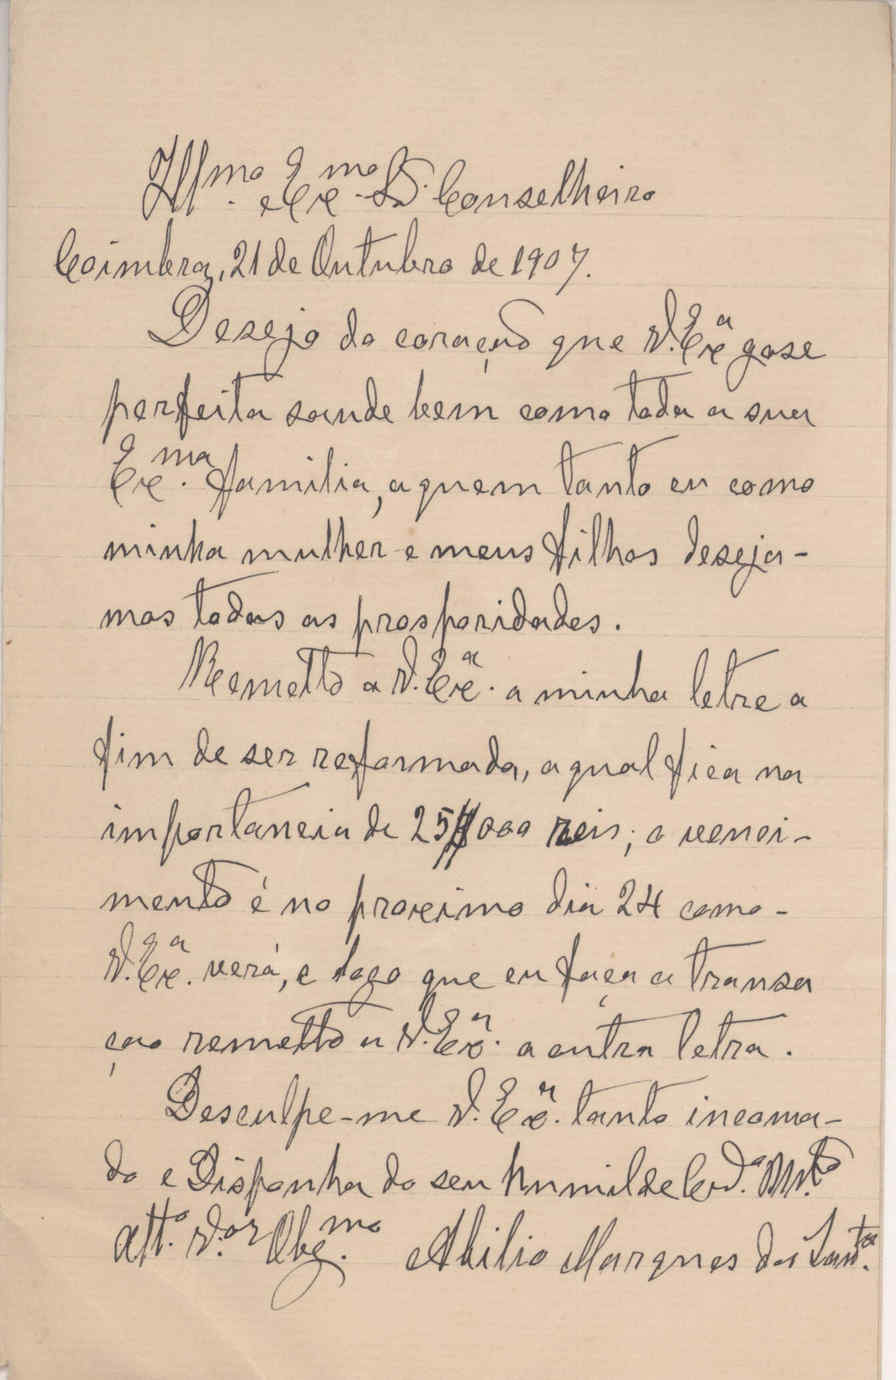 Illmo. Exmo. Sr. Conselheiro
Coimbra, 21 de Outubro de 1907.
Desejo do coração que V. Exa gose
perfeita saude bem como toda a sua
Exma. familia, a quem tanto eu como
minha mulher e meus filhos deseja-
mos todas as prosporidades.
Remetto a V. Exa. a minha letre a
fim de ser reformada, a qual fica na
importancia de 25$000 reis; o venci-
mento é no proximo dia 24 como-
V. Exa. verá, e logo que eu faça a transa
ção remetto a V. Exa. a outra letra.
Desculpe-me V. Exa. tanto incomo-
do e Disponha do seu humilde Codo. Mto.
Atto. V.or Obgmo. Abilio Marques dos Santos.